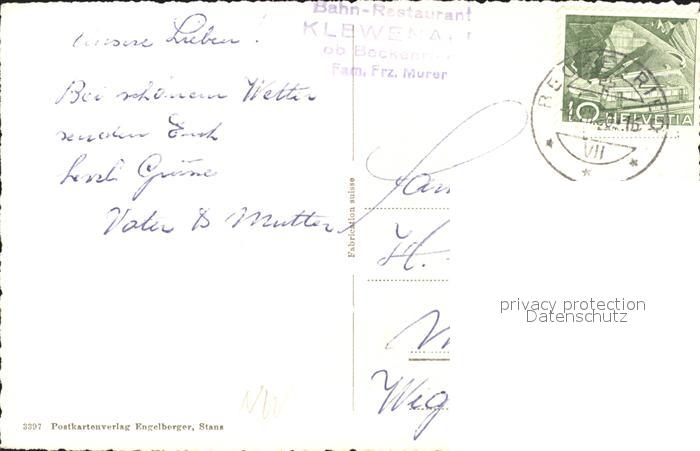 unsere Lieben!
Bei schönem Wetter
senden Euch
herzli Grüsse
Vater & Mutter
Bahn-Restaurant
KLEWENALP
ob Beckenried
Fam. Frz. Murer
10 HELVETIA
BECKENRIED
VII
Fabrication suisse
Fam
H.
Wig
privacy protection
Datenschutz
3397 Postkartenverlag Engelberger, Stans